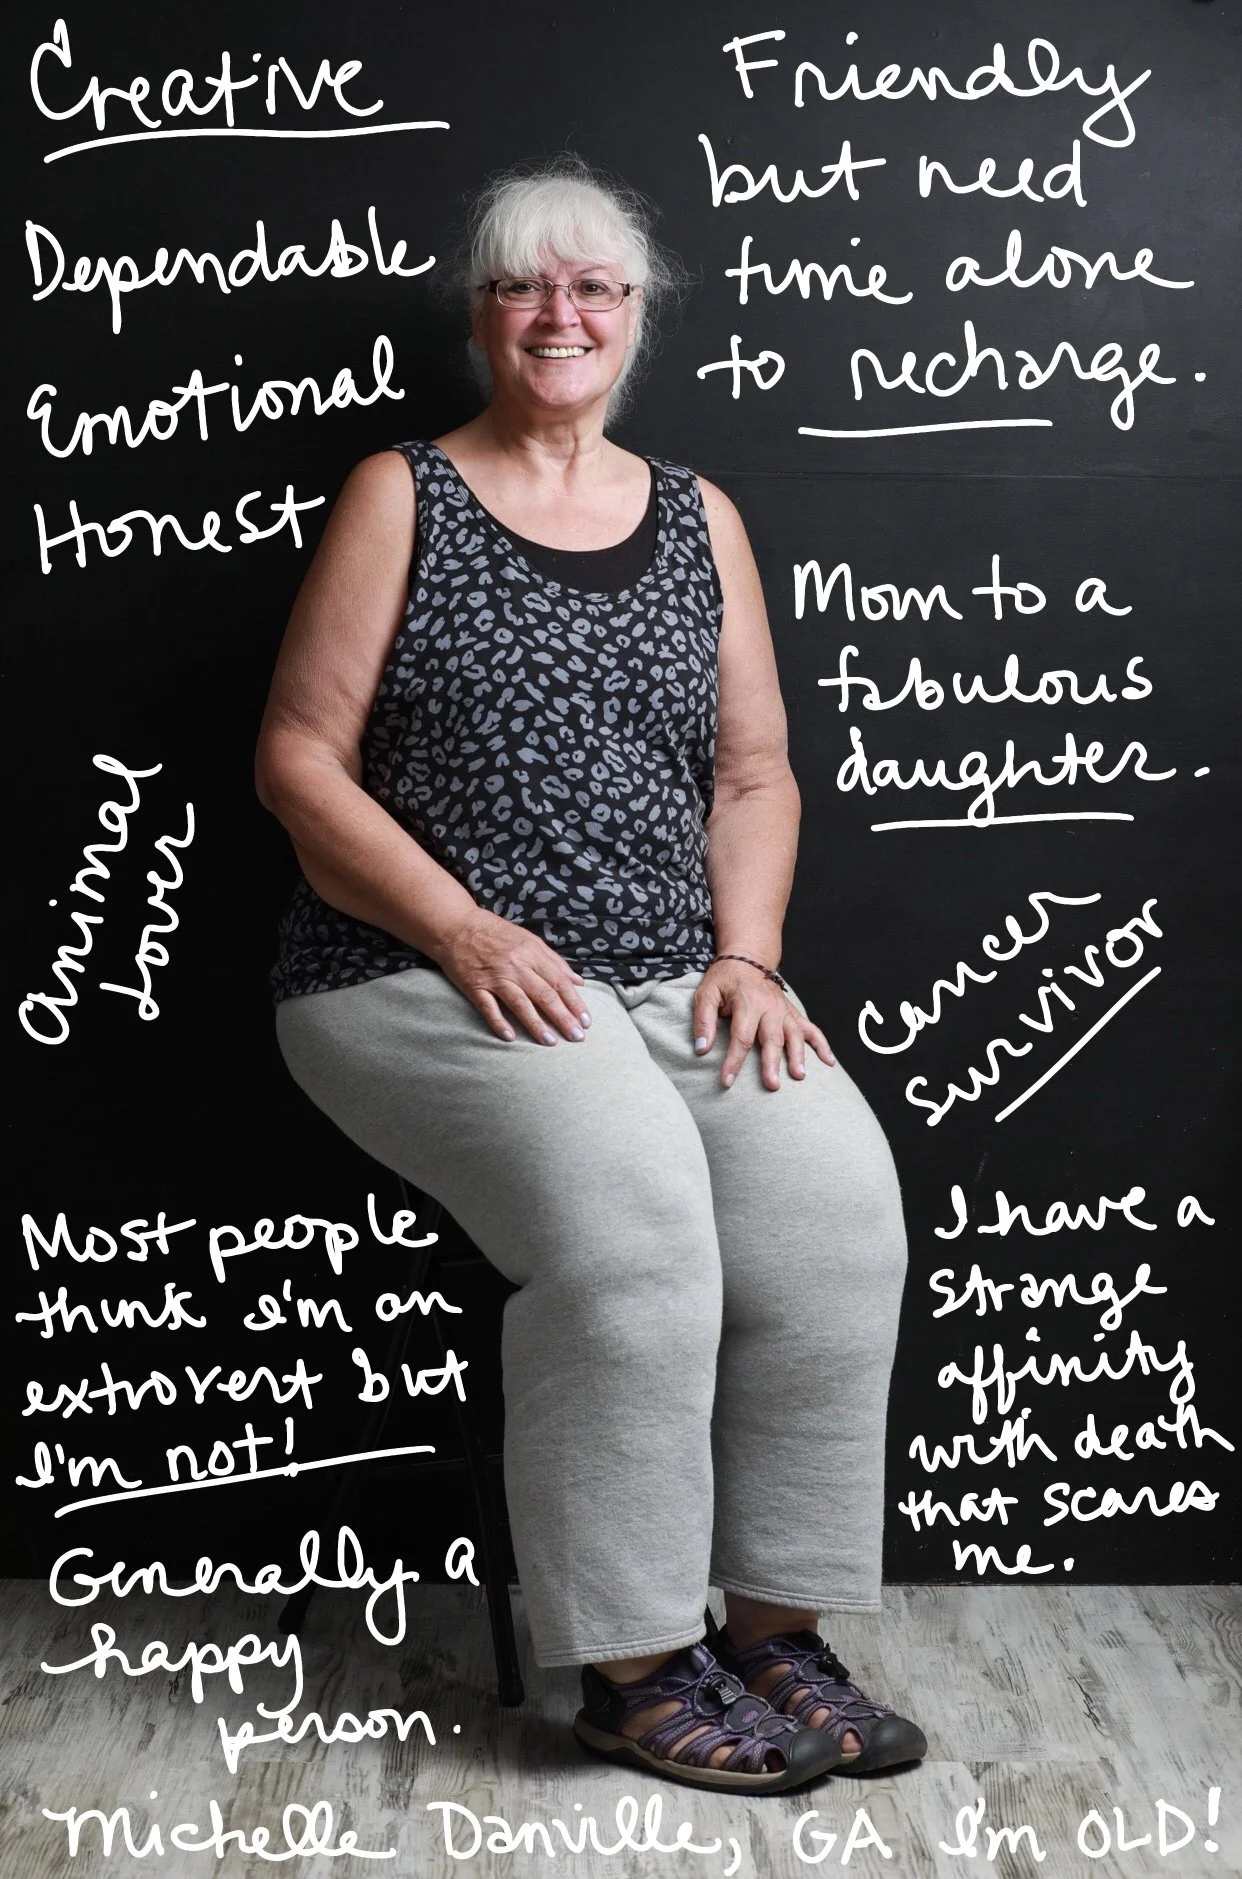 Creative
Dependable
Emotional
Honest
animal
lover
Most people
think I'm an
extrovert but
I'm not!
Generally a
happy
person.
Friendly
but need
time alone
to recharge.
Mom to a
fabulous
daughter.
Cancer
survivor
I have a
strange
affinity
with death
that scares
me.
Michelle Danville, GA I'm OLD!